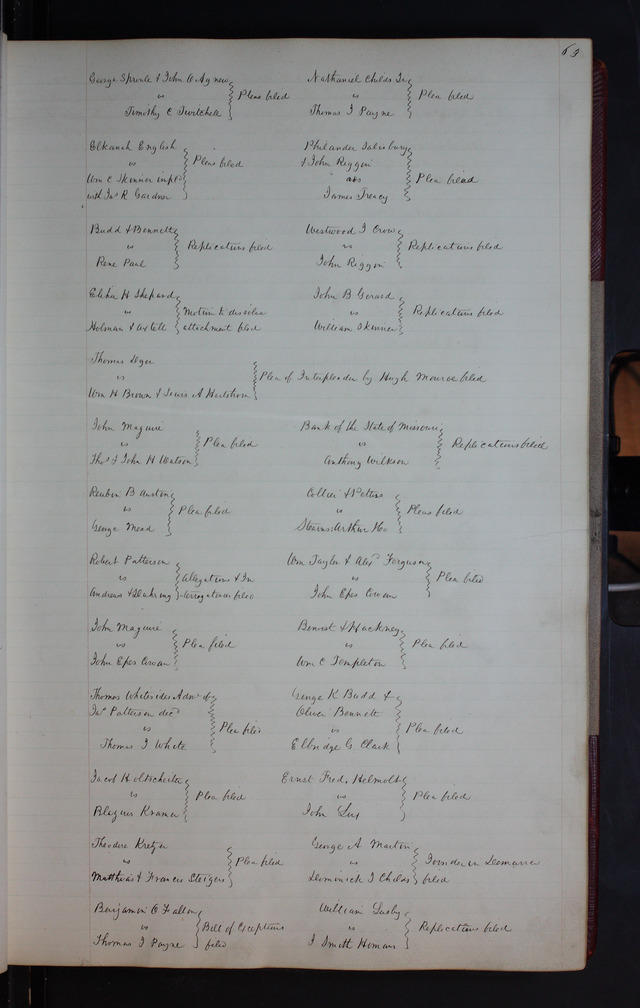 63
George Sproule & John O Agnew
vs
Timothy C Twitchell
Pleas filed
Nathaniel Childs Jr
vs
Thomas J Payne
Plea filed
Elkanah English
vs
Wm C Skinner impld
with Jas R Gardner
Pleas filed
Philander Salisbury
& John Riggin
ats
James Treacy
Plea filed
Budd & Bennett
vs
Rene Paul
Replications filed
Westwood T Crow
vs
John Riggin
Replications filed
Elisha H Shepard
vs
Holman & Axtell
Motion to dissolve
attachment filed
John B Gerard
vs
William Skinner
Replications filed
Thomas
vs
Wm H Brown & Lewis A
Plea of Interpleader by Hugh Monroe filed
John Maguire
vs
Thos & John H Watson
Plea filed
Bank of the State of Missouri
vs
Anthony Wilkson
Replications filed
Reuben B Austin
vs
George Mead
Plea filed
Collier & Pettus
vs
Stearns Arthur & Co
Pleas filed
Robert Patterson
vs
Andreas &
Allegations & In
terrogatories filed
Wm Taylor & Alexr Ferguson
vs
John Epes Cowan
Plea filed
John Maguire
vs
John Epes Cowan
Plea filed
Benoist & Hackney
vs
Wm C Templeton
Plea filed
Thomas Whitesides Admr of
Jas Patterson decd
vs
Thomas J White
Plea filed
George K Budd &
Oliver Bennett
vs
Elbridge G Clark
Plea filed
Jacob Holtscheiter
vs
Blazius Kramer
Plea filed
Ernst Fred. Helmolt
vs
John
Plea filed
Theodore Kretzer
vs
Matthias & Francis Steigers
Plea filed
George A Martin
vs
Dominick J Childs
Joinder in Demurrer
filed
Benjamin O Fallon
vs
Thomas J Payne
Bill of Exceptions
filed
William Lusby
vs
J Smith Homans
Replications filed